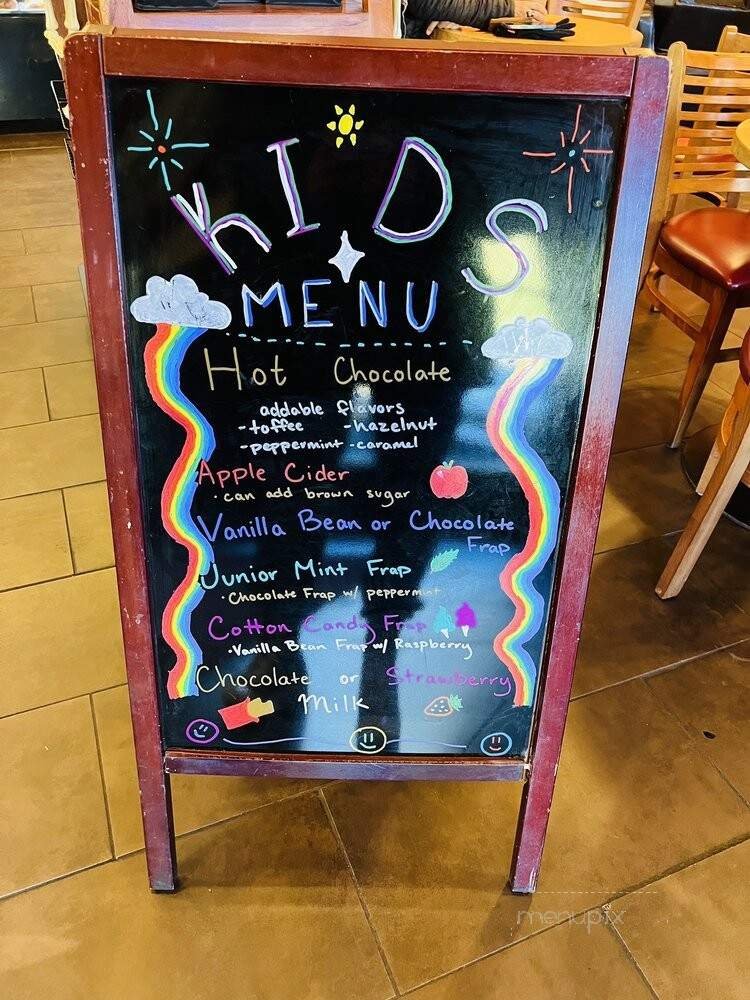 KIDS
MENU
Hot Chocolate
addable flavors
-toffee -hazelnut
-peppermint -caramel
Apple Cider
• can add brown sugar
Vanilla Bean or Chocolate
Frap
Junior Mint Frap
• Chocolate Frap w/ peppermint
Cotton Candy Frap
• Vanilla Bean Frap w/ Raspberry
Chocolate or Strawberry
Milk
menupix